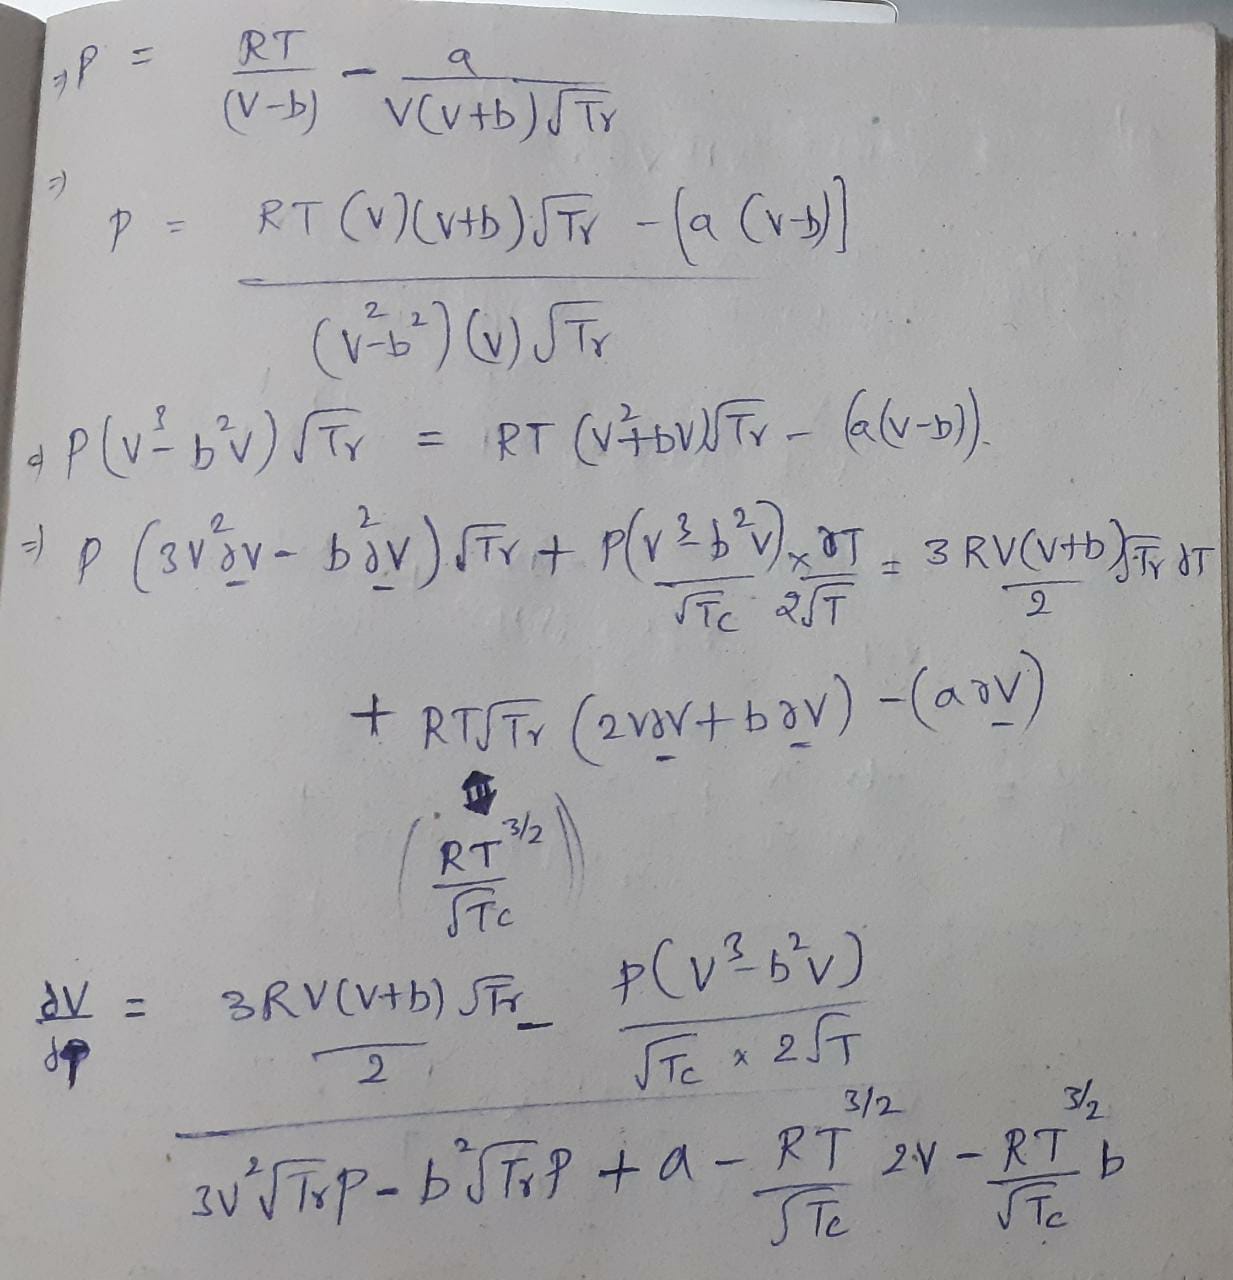 ⇒ P = RT/(V-b) - a/(V(V+b)√Tr)
⇒ P = (RT(V)(V+b)√Tr - [a(V-b)])/((V²-b²)(V)√Tr)
⇒ P(V³-b²V)√Tr = RT(V²+bV)√Tr - (a(V-b)).
⇒ P(3V²∂V - b²∂V)√Tr + P(V³-b²V)/√Tc × ∂T/2√T = 3RV(V+b)√Tr ∂T/2
+ RT√Tr (2V∂V + b∂V) - (a∂V)
(RT^3/2/√Tc)
∂V/∂P = (3RV(V+b)√Tr/2 - P(V³-b²V)/(√Tc × 2√T))/(3V²√Tr P - b²√Tr P + a - RT^3/2/√Tc 2V - RT^3/2/√Tc b)